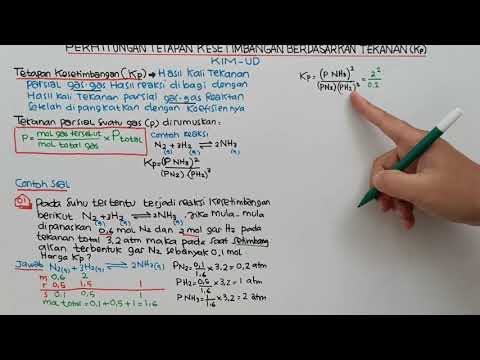 PERHITUNGAN TETAPAN KESETIMBANGAN BERDASARKAN TEKANAN (Kp)
KIM-UD
Tetapan Kesetimbangan (Kp) → Hasil kali Tekanan
Parsial gas-gas Hasil reaksi di bagi dengan
Hasil kali Tekanan parsial gas-gas Reaktan
Setelah di pangkatkan dengan Koefisiennya
Tekanan parsial suatu gas (p) dirumuskan:
P = mol gas tersebut / mol total gas × P total
Contoh reaksi
N2 + 3H2 ⇌ 2NH3
(g) (g) (g)
Kp = (P NH3)² / (PN2) (PH2)³
Contoh Soal
01 Pada Suhu tertentu terjadi reaksi Kesetimbangan
berikut N2 + 3H2 ⇌ 2NH3, Jika mula-mula
(g) (g) (g)
dipanaskan 0,6 mol N2 dan 2 mol gas H2 pada
tekanan total 3,2 atm maka pada saat setimbang
akan terbentuk gas N2 sebanyak 0,1 mol
Harga Kp?
Jawab N2(g) + 3H2(g) ⇌ 2NH3(g)
m 0,6 2
r 0,5 1,5 1
s 0,1 0,5 1
mol total = 0,1 + 0,5 + 1 = 1,6
PN2 = 0,1/1,6 × 3,2 = 0,2 atm
PH2 = 0,5/1,6 × 3,2 = 1 atm
P NH3 = 1/1,6 × 3,2 = 2 atm
Kp = (P NH3)² / (PN2)(PH2)³ = 2² / 0,2